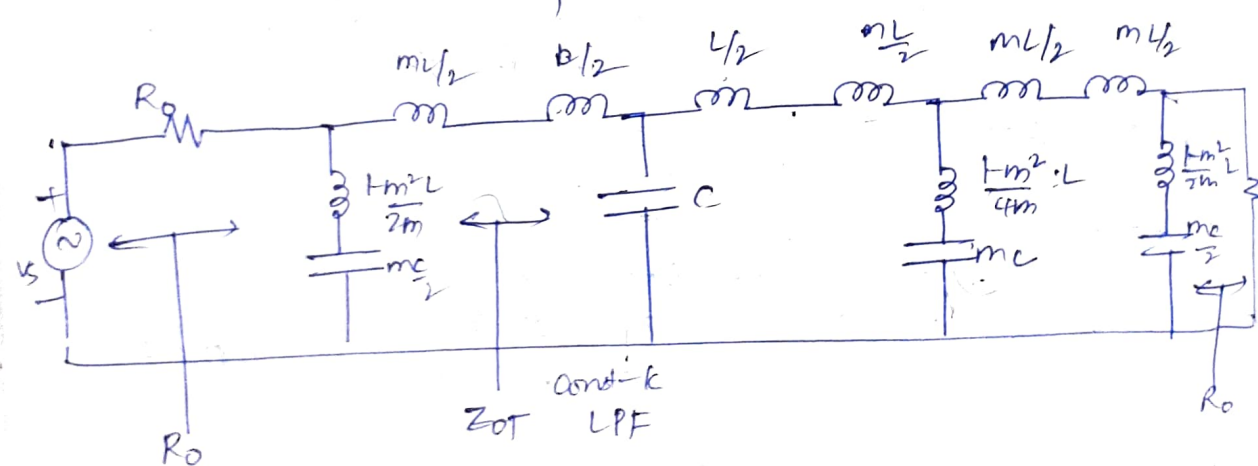 R₀
mL/2
L/2
L/2
mL/2
mL/2
mL/2
+
Vs
1-m²L/2m
mC/2
C
1-m²/4m · L
mC
1-m²/2m L
mC/2
R₀
Z₀T
Const-k
LPF
R₀